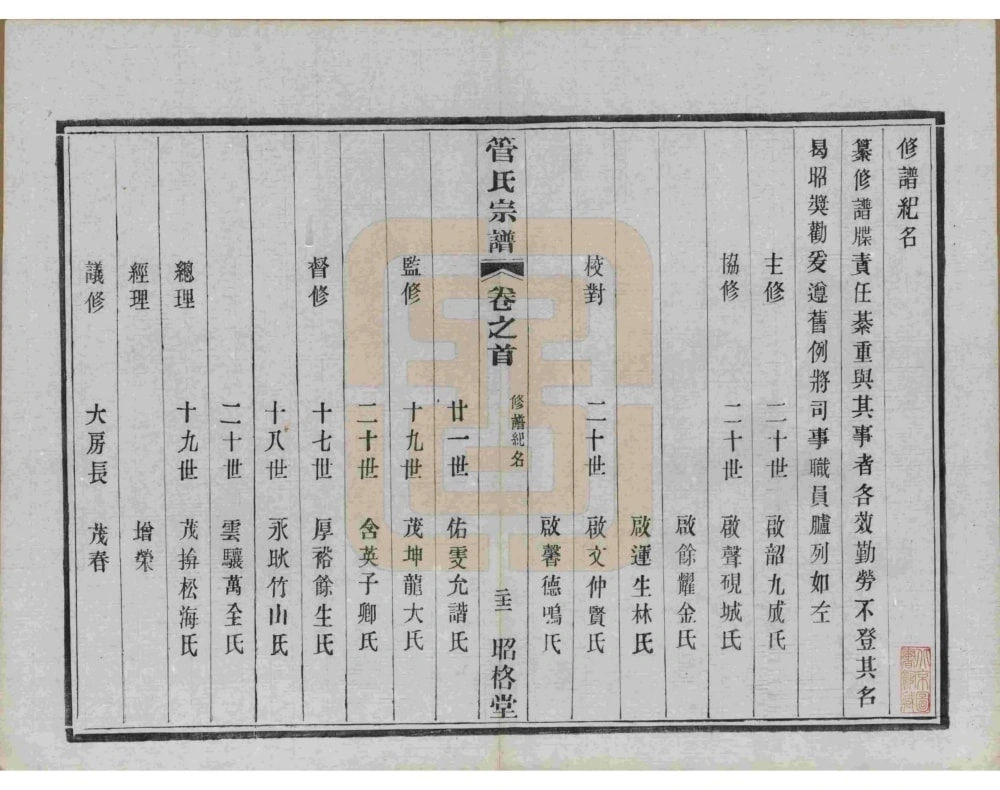 修譜紀名
纂修譜牒責任綦重與其事者各效勤勞不登其名
曷昭獎勸爰遵舊例將司事職員臚列如左
主修 二十世 啟韶九成氏
協修 二十世 啟聲硯城氏
啟餘耀金氏
啟運生林氏
校對 二十世 啟文仲賢氏
啟馨德鳴氏
管氏宗譜 卷之首 修譜紀名 二十三 昭格堂
廿一世 佑雯允諧氏
監修 十九世 茂坤龍大氏
二十世 含英子卿氏
督修 十七世 厚裕餘生氏
十八世 永耿竹山氏
二十世 雲驤萬全氏
總理 十九世 茂松海氏
經理 增榮
議修 大房長 茂春